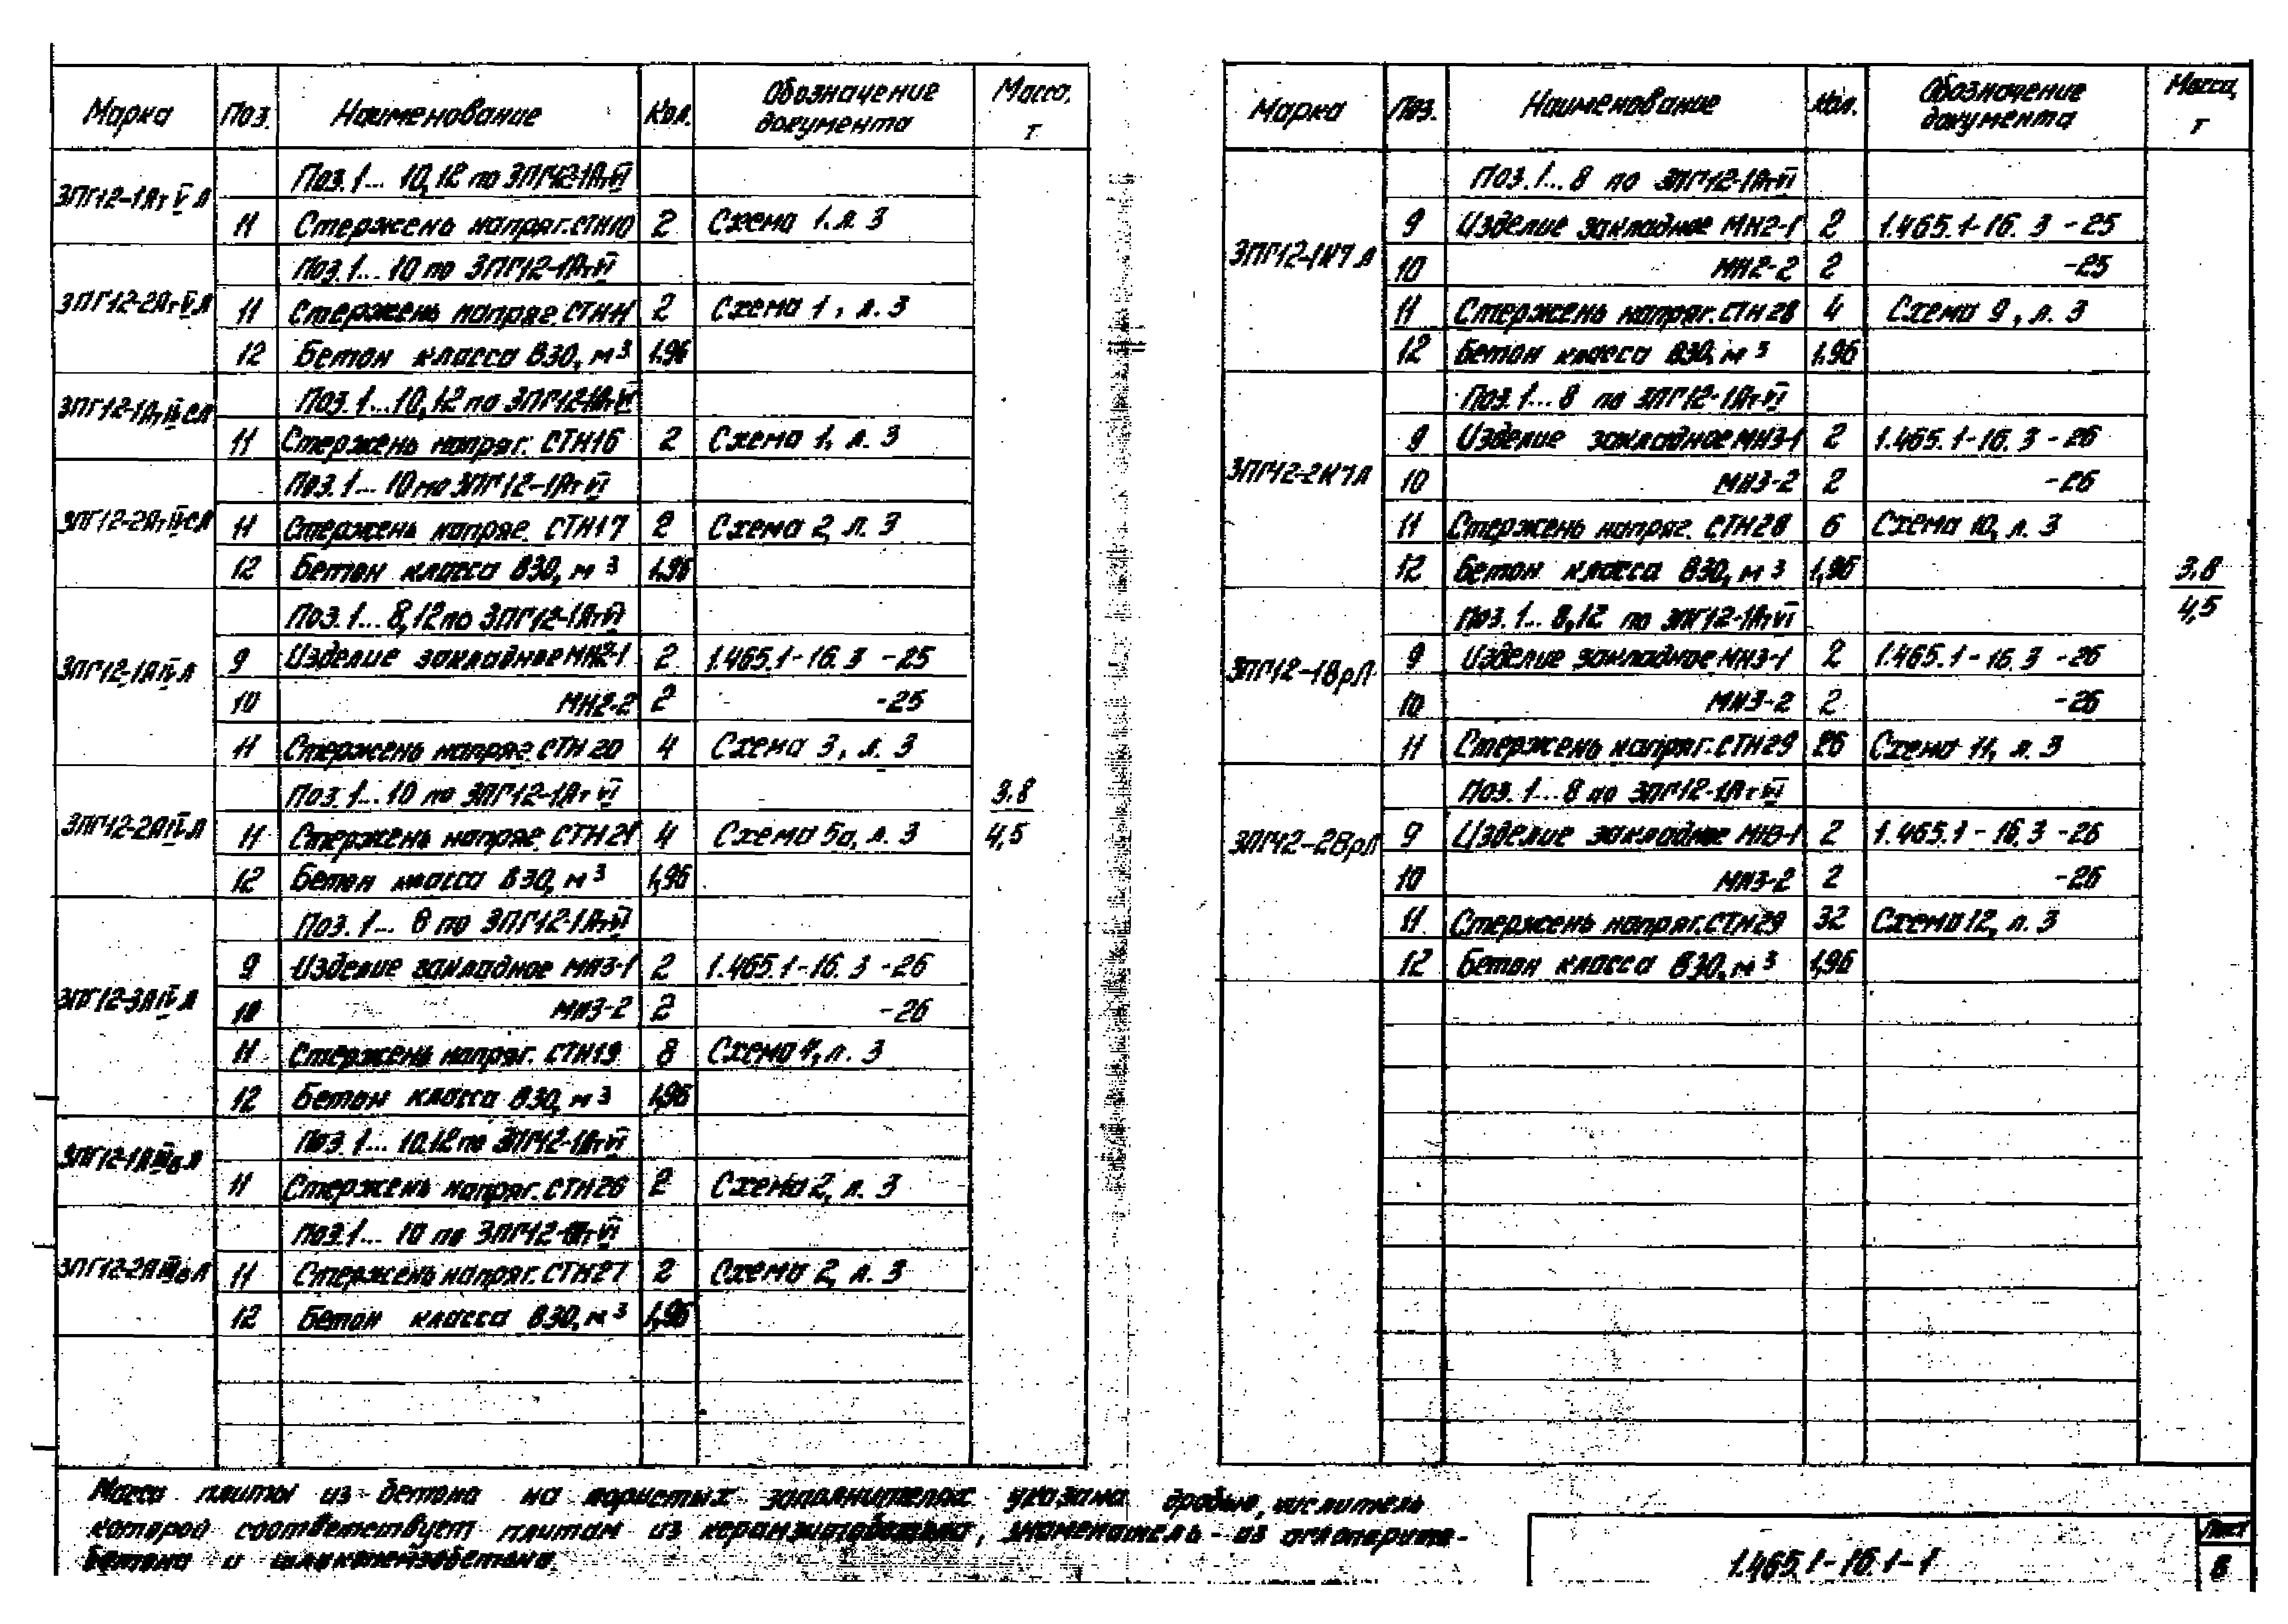 Марка Поз. Наименование Кол. Обозначение документа Масса, т
3ПГ12-1АтVЛ
Поз. 1... 10, 12 по 3ПГ12-1АтVI
11 Стержень напряг. СТН10 2 Схема 1, л. 3
3ПГ12-2АтVЛ
Поз. 1... 10 по 3ПГ12-1АтVI
11 Стержень напряг. СТН11 2 Схема 1, л. 3
12 Бетон класса В30, м³ 1,96
3ПГ12-1АтIVСЛ
Поз. 1... 10, 12 по 3ПГ12-1АтVI
11 Стержень напряг. СТН16 2 Схема 1, л. 3
3ПГ12-2АтIVСЛ
Поз. 1... 10 по 3ПГ12-1АтVI
11 Стержень напряг. СТН17 2 Схема 2, л. 3
12 Бетон класса В30, м³ 1,96
3ПГ12-1АIVЛ
Поз. 1... 8, 12 по 3ПГ12-1АтVI
9 Изделие закладное МН2-1 2 1.465.1-16.3 -25
10 МН2-2 2 -25
11 Стержень напряг. СТН20 4 Схема 3, л. 3
3ПГ12-2АIVЛ
Поз. 1... 10 по 3ПГ12-1АтVI
11 Стержень напряг. СТН21 4 Схема 5а, л. 3
12 Бетон класса В30, м³ 1,96
3ПГ12-3АIVЛ
Поз. 1... 8 по 3ПГ12-1АтVI
9 Изделие закладное МН3-1 2 1.465.1-16.3 -26
10 МН3-2 2 -26
11 Стержень напряг. СТН19 8 Схема 7, л. 3
12 Бетон класса В30, м³ 1,96
3ПГ12-1АIIIвЛ
Поз. 1... 10, 12 по 3ПГ12-1АтVI
11 Стержень напряг. СТН26 2 Схема 2, л. 3
3ПГ12-2АIIIвЛ
Поз. 1... 10 по 3ПГ12-1АтVI
11 Стержень напряг. СТН27 2 Схема 2, л. 3
12 Бетон класса В30, м³ 1,96
3,8
4,5
Марка Поз. Наименование Кол. Обозначение документа Масса, т
3ПГ12-1К7Л
Поз. 1... 8 по 3ПГ12-1АтVI
9 Изделие закладное МН2-1 2 1.465.1-16.3 -25
10 МН2-2 2 -25
11 Стержень напряг. СТН28 4 Схема 9, л. 3
12 Бетон класса В30, м³ 1,96
3ПГ12-2К7Л
Поз. 1... 8 по 3ПГ12-1АтVI
9 Изделие закладное МН3-1 2 1.465.1-16.3 -26
10 МН3-2 2 -26
11 Стержень напряг. СТН28 6 Схема 10, л. 3
12 Бетон класса В30, м³ 1,96
3ПГ12-1ВрЛ
Поз. 1... 8, 12 по 3ПГ12-1АтVI
9 Изделие закладное МН3-1 2 1.465.1-16.3 -26
10 МН3-2 2 -26
11 Стержень напряг. СТН29 26 Схема 11, л. 3
3ПГ12-2ВрЛ
Поз. 1... 8 по 3ПГ12-1АтVI
9 Изделие закладное МН3-1 2 1.465.1-16.3 -26
10 МН3-2 2 -26
11 Стержень напряг. СТН29 32 Схема 12, л. 3
12 Бетон класса В30, м³ 1,96
3,8
4,5
Масса плиты из бетона на пористых заполнителях указана дробью, числитель
которой соответствует плитам из керамзитобетона, знаменатель - из аглопорито-
бетона и шлакопемзобетона.
1.465.1-16.1-1
Лист
8